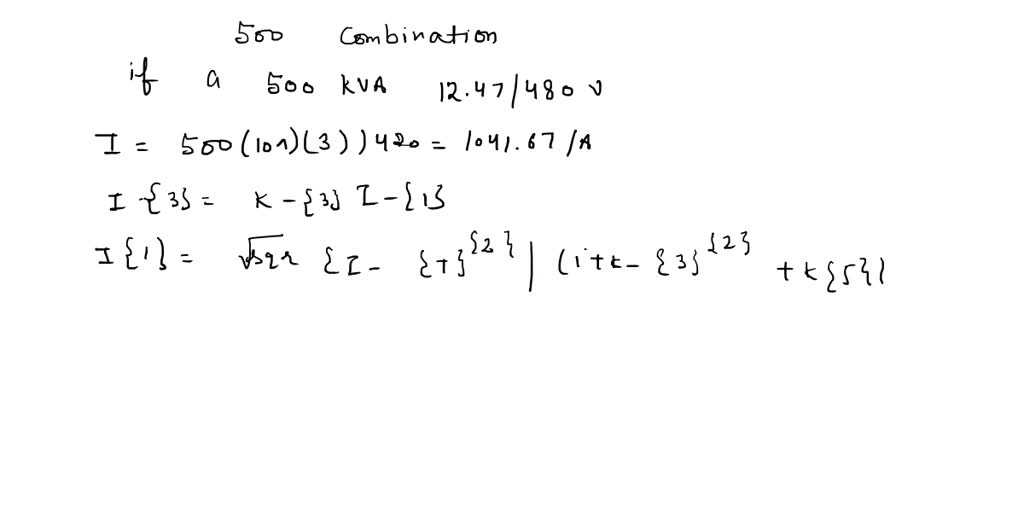 500 Combination
if a 500 KVA 12.47/480 V
I = 500(101)(3))480 = 1041.67/A
I-{3} = K-{3} I-{1}
I{1} = √sqr {I- {T}^{2} | (i+k-{3}^{2} + k{5})